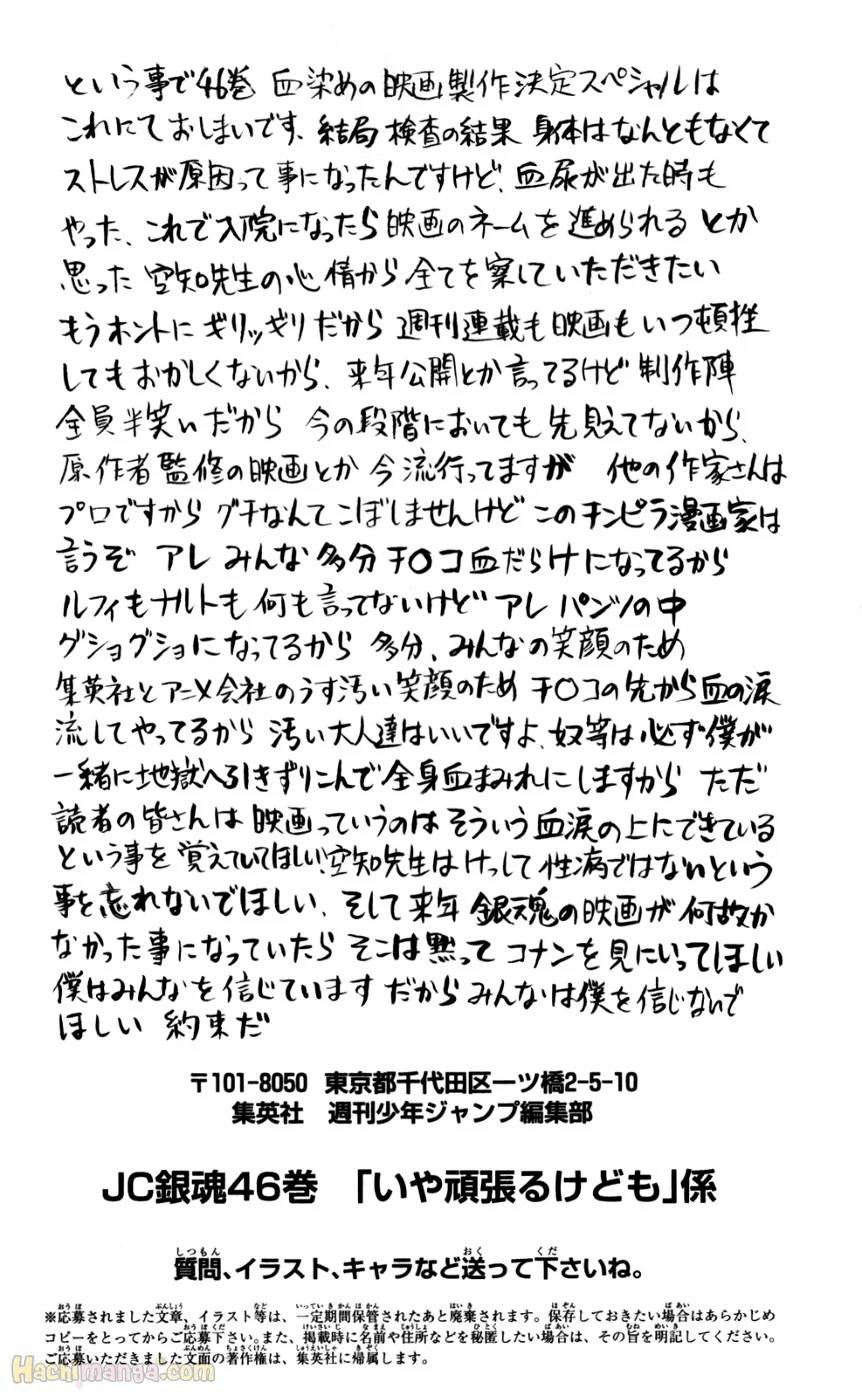 という事で46巻 血染めの映画製作決定スペシャルは
これにておしまいです、結局 検査の結果 身体はなんともなくて
ストレスが原因って事になったんですけど、血尿が出た時も
やった、これで入院になったら映画のネームを進められるとか
思った 空知先生の心情から全てを察していただきたい
もうホントにギリッギリだから 週刊連載も映画もいつ頓挫
してもおかしくないから、来年公開とか言ってるけど制作陣
全員半笑いだから 今の段階においても先見えてないから、
原作者監修の映画とか今流行ってますが 他の作家さんは
プロですから グチなんてこぼしませんけどこのチンピラ漫画家は
言うぞ アレ みんな多分チ○コ血だらけになってるから
ルフィもナルトも何も言ってないけど アレ パンツの中
グショグショになってるから 多分、みんなの笑顔のため
集英社とアニメ会社のうす汚い笑顔のためチ○コの先から血の涙
流してやってるから 汚い大人達はいいですよ、奴等は必ず僕が
一緒に地獄へ引きずりこんで全身血まみれにしますから ただ
読者の皆さんは 映画っていうのはそういう血涙の上にできている
という事を覚えていてほしい、空知先生はけっして性病ではないという
事を忘れないでほしい、そして来年 銀魂の映画が何故か
なかった事になっていたら そこは黙って コナンを見にいってほしい
僕はみんなを信じています だからみんなは僕を信じないで
ほしい 約束だ
〒101-8050 東京都千代田区一ツ橋2-5-10
集英社 週刊少年ジャンプ編集部
JC銀魂46巻 「いや頑張るけども」係
しつもん おく くだ
質問、イラスト、キャラなど送って下さいね。
おうぼ ぶんしょう など いっていきかんほかん はいき ほぞん ばあい
※応募されました文章、イラスト等は、一定期間保管されたあと廃棄されます。保存しておきたい場合はあらかじめ
おうぼくだ けいさいじ なまえ じゅうしょ ひとく ばあい むね めいき
コピーをとってからご応募下さい。また、掲載時に名前や住所などを秘匿したい場合は、その旨を明記してください。
おうぼ ぶんめん ちょさくけん しゅうえいしゃ きぞく
ご応募いただきました文面の著作権は、集英社に帰属します。
Hachimanga.com